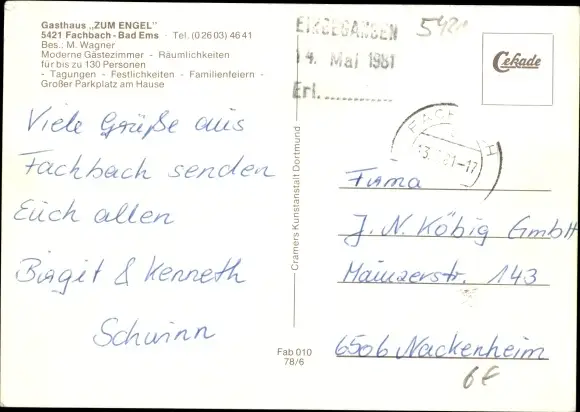 Gasthaus „ZUM ENGEL"
5421 Fachbach - Bad Ems · Tel. (0 26 03) 46 41
Bes.: M. Wagner
Moderne Gästezimmer - Räumlichkeiten
für bis zu 130 Personen
- Tagungen - Festlichkeiten - Familienfeiern -
Großer Parkplatz am Hause
Viele Grüße aus
Fachbach senden
Euch allen
Birgit & Kenneth
Schwinn
EINGEGANGEN
14. Mai 1981
Erl.
5421
Cekade
Cramers Kunstanstalt Dortmund
Fab 010
78/6
Firma
J. N. Köbig GmbH
Mainzerstr. 143
6506 Nackenheim
6€